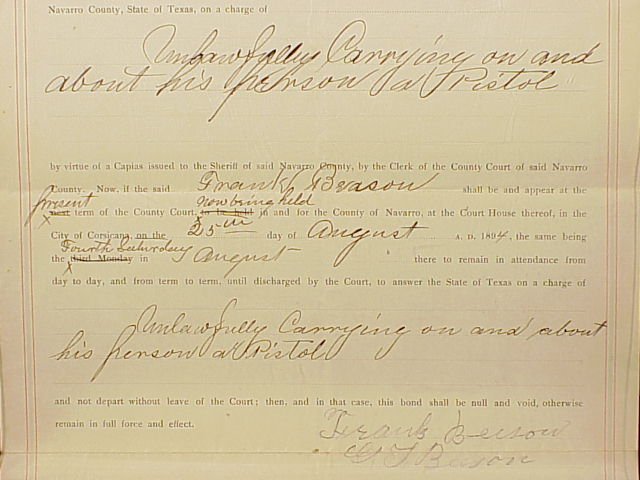 Navarro County, State of Texas, on a charge of
Unlawfully Carrying on and
about his person a Pistol
by virtue of a Capias issued to the Sheriff of said Navarro County, by the Clerk of the County Court of said Navarro
County. Now, if the said Frank Beason shall be and appear at the
present now being held
next term of the County Court, to be held in and for the County of Navarro, at the Court House thereof, in the
City of Corsicana, on the 25th day of August A. D. 1894, the same being
Fourth Saturday
the third Monday in August there to remain in attendance from
day to day, and from term to term, until discharged by the Court, to answer the State of Texas on a charge of
Unlawfully Carrying on and about
his person a Pistol
and not depart without leave of the Court; then, and in that case, this bond shall be null and void, otherwise
remain in full force and effect.
Frank Beison
Beason